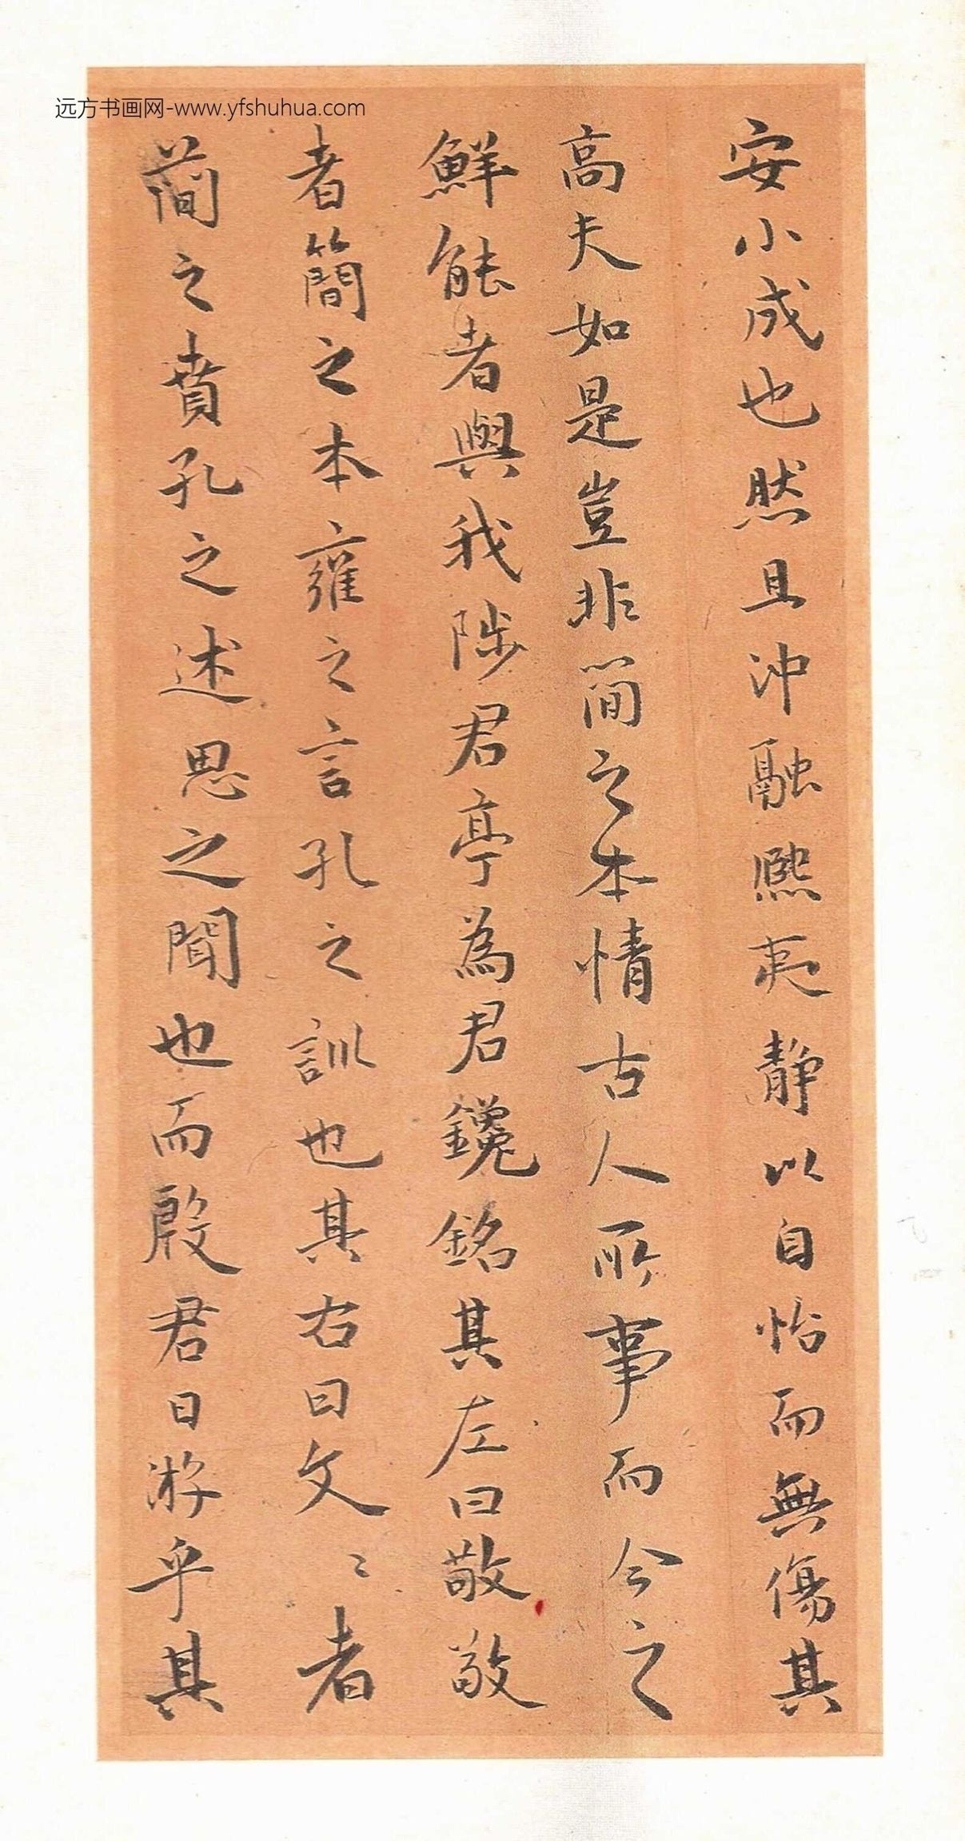 远方书画网-www.yfshuhua.com
安小成也然且沖融熙夷靜以自怡而無傷其
高夫如是豈非簡之本情古人所事而今之
鮮能者與我陟君亭為君鑱銘其左曰敬敬
者簡之本雍之言孔之訓也其右曰文〻者
簡之賁孔之述思之聞也而殷君日游乎其